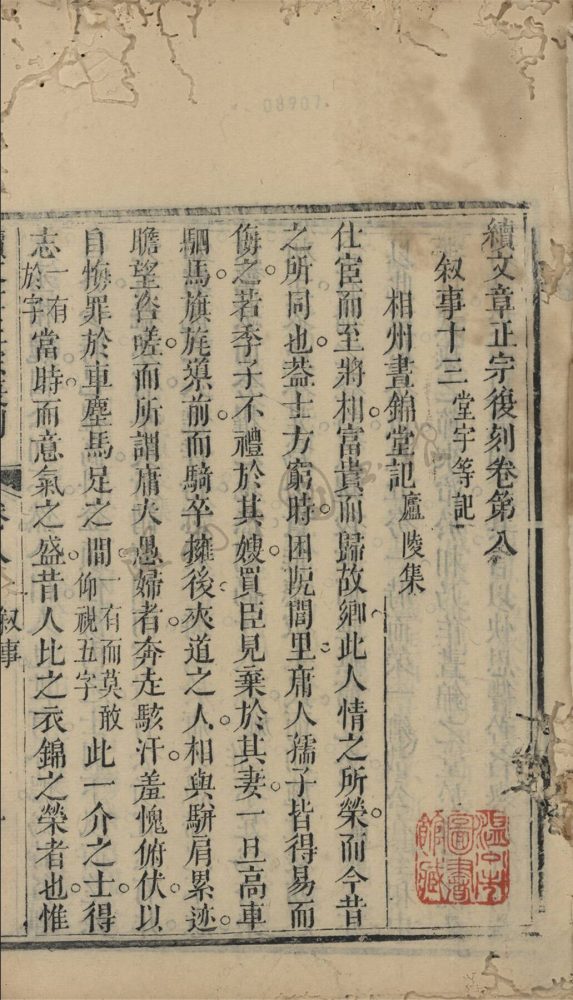 08907
續文章正宗復刻卷第八
叙事十三 堂宇等記
相州晝錦堂記 廬陵集
仕宦而至將相富貴而歸故鄉此人情之所榮而今昔
之所同也葢士方窮時困阨閭里庸人孺子皆得易而
侮之若季子不禮於其嫂買臣見棄於其妻一旦高車
駟馬旗旄導前而騎卒擁後夾道之人相與駢肩累迹
瞻望咨嗟而所謂庸夫愚婦者奔走駭汗羞愧俯伏以
自悔罪於車塵馬足之間一有而莫敢仰視五字此一介之士得
志一有於字當時而意氣之盛昔人比之衣錦之榮者也惟
卷八 叙事
圖書
館藏